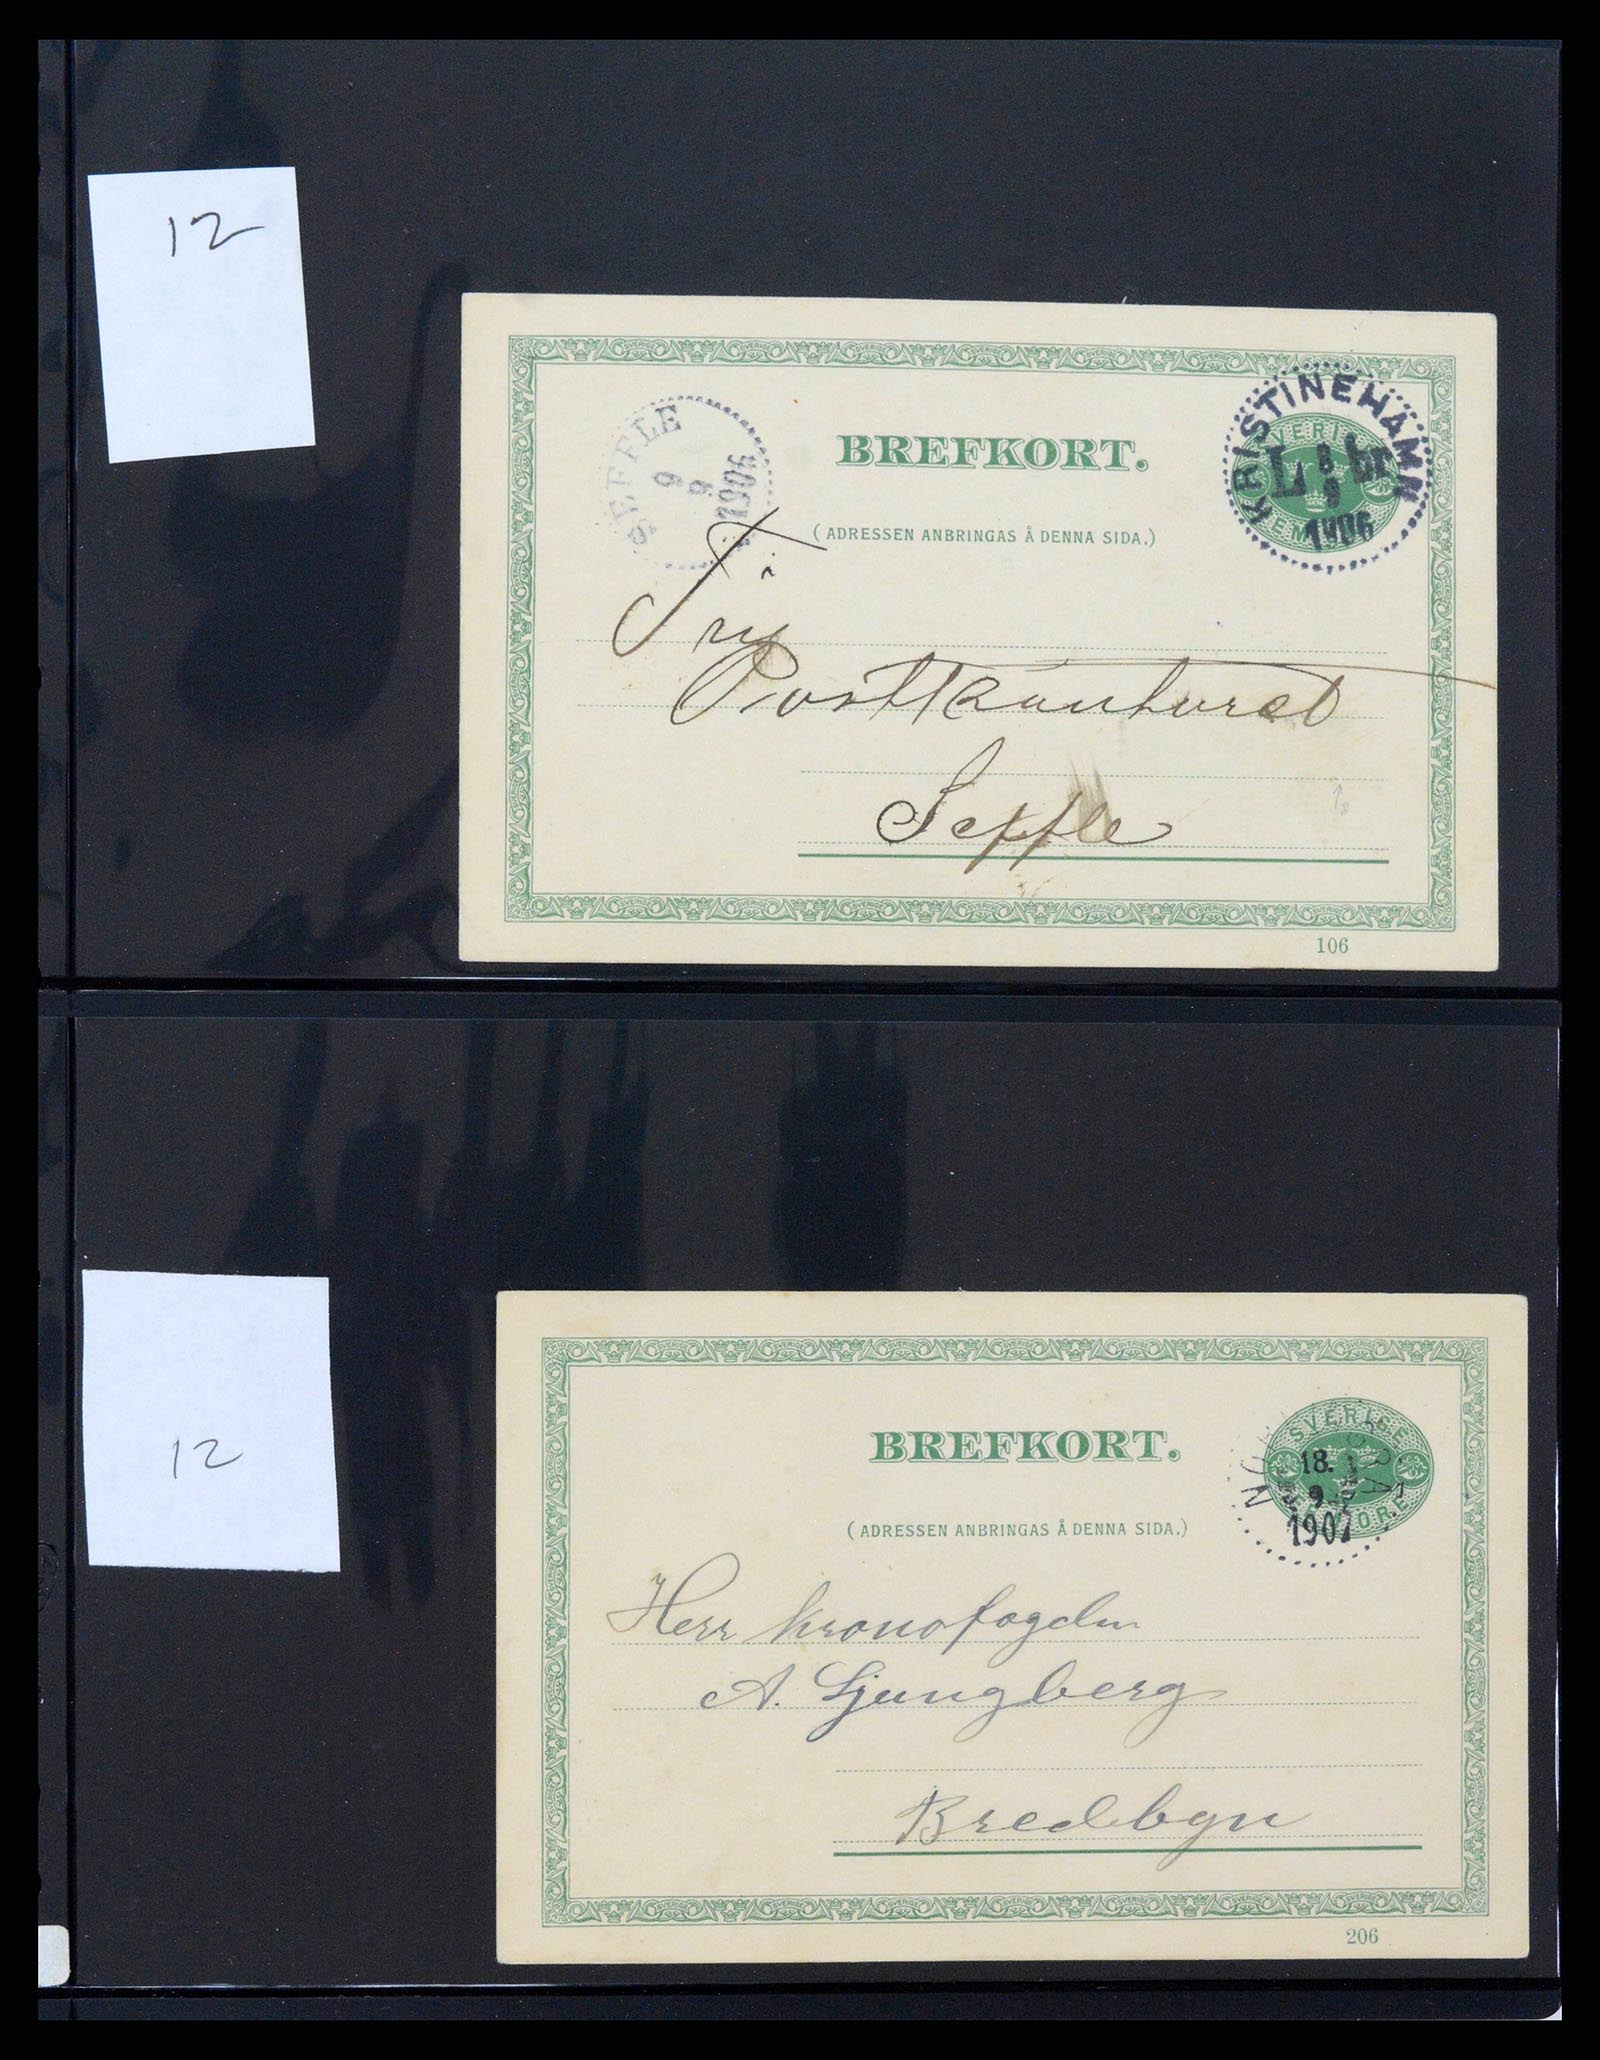 12
BREFKORT.
(ADRESSEN ANBRINGAS Å DENNA SIDA.)
KRISTINEHAMN
8
9
1906
SVERIGE
SEFFLE
9
9
1906
Postkontoret
Seffle
106
12
BREFKORT.
(ADRESSEN ANBRINGAS Å DENNA SIDA.)
SVERIGE
ÖRE
18.
9
1907
Herr Kronofogden
A. Ljungberg
Bredbyn
206